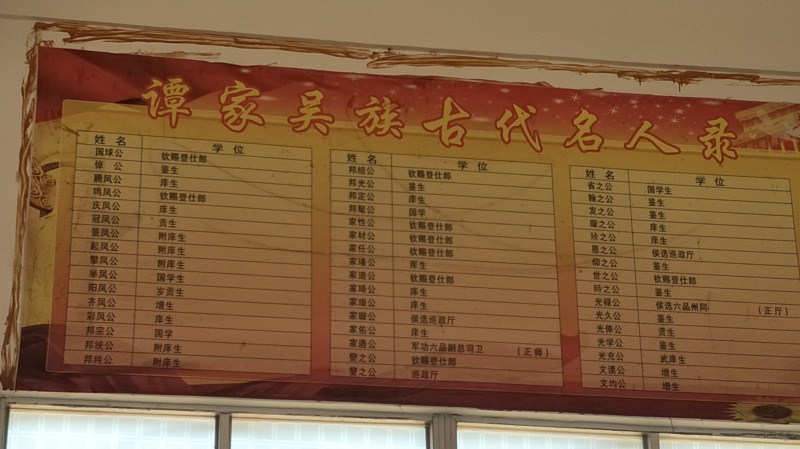 谭家吴族古代名人录
姓名 学位
国球公 钦赐登仕郎
俸公 鉴生
腾凤公 庠生
鸣凤公 钦赐登仕郎
庆凤公 庠生
冠凤公 贡生
景凤公 附庠生
起凤公 附庠生
攀凤公 附庠生
半凤公 国学生
阳凤公 岁贡生
齐凤公 增生
彩凤公 庠生
邦宗公 国学
邦统公 附庠生
邦纯公 附庠生
姓名 学位
邦绍公 钦赐登仕郎
邦光公 鉴生
邦定公 庠生
邦髦公 国学
家性公 钦赐登仕郎
家材公 钦赐登仕郎
家任公 钦赐登仕郎
家墙公 庠生
家迪公 钦赐登仕郎
家琦公 庠生
家琅公 庠生
家璇公 侯选巡政厅
家佑公 庠生
家通公 军功六品副总司卫 (正师)
燮之公 钦赐登仕郎
燮之公 巡政厅
姓名 学位
省之公 国学生
翰之公 鉴生
发之公 鉴生
璇之公 庠生
玲之公 庠生
恩之公 侯选巡政厅
仰之公 鉴生
世之公 钦赐登仕郎
时之公 鉴生
光禄公 侯选六品州同 (正厅)
光久公 鉴生
光俸公 贡生
光学公 鉴生
光充公 武庠生
文谟公 增生
文均公 增生